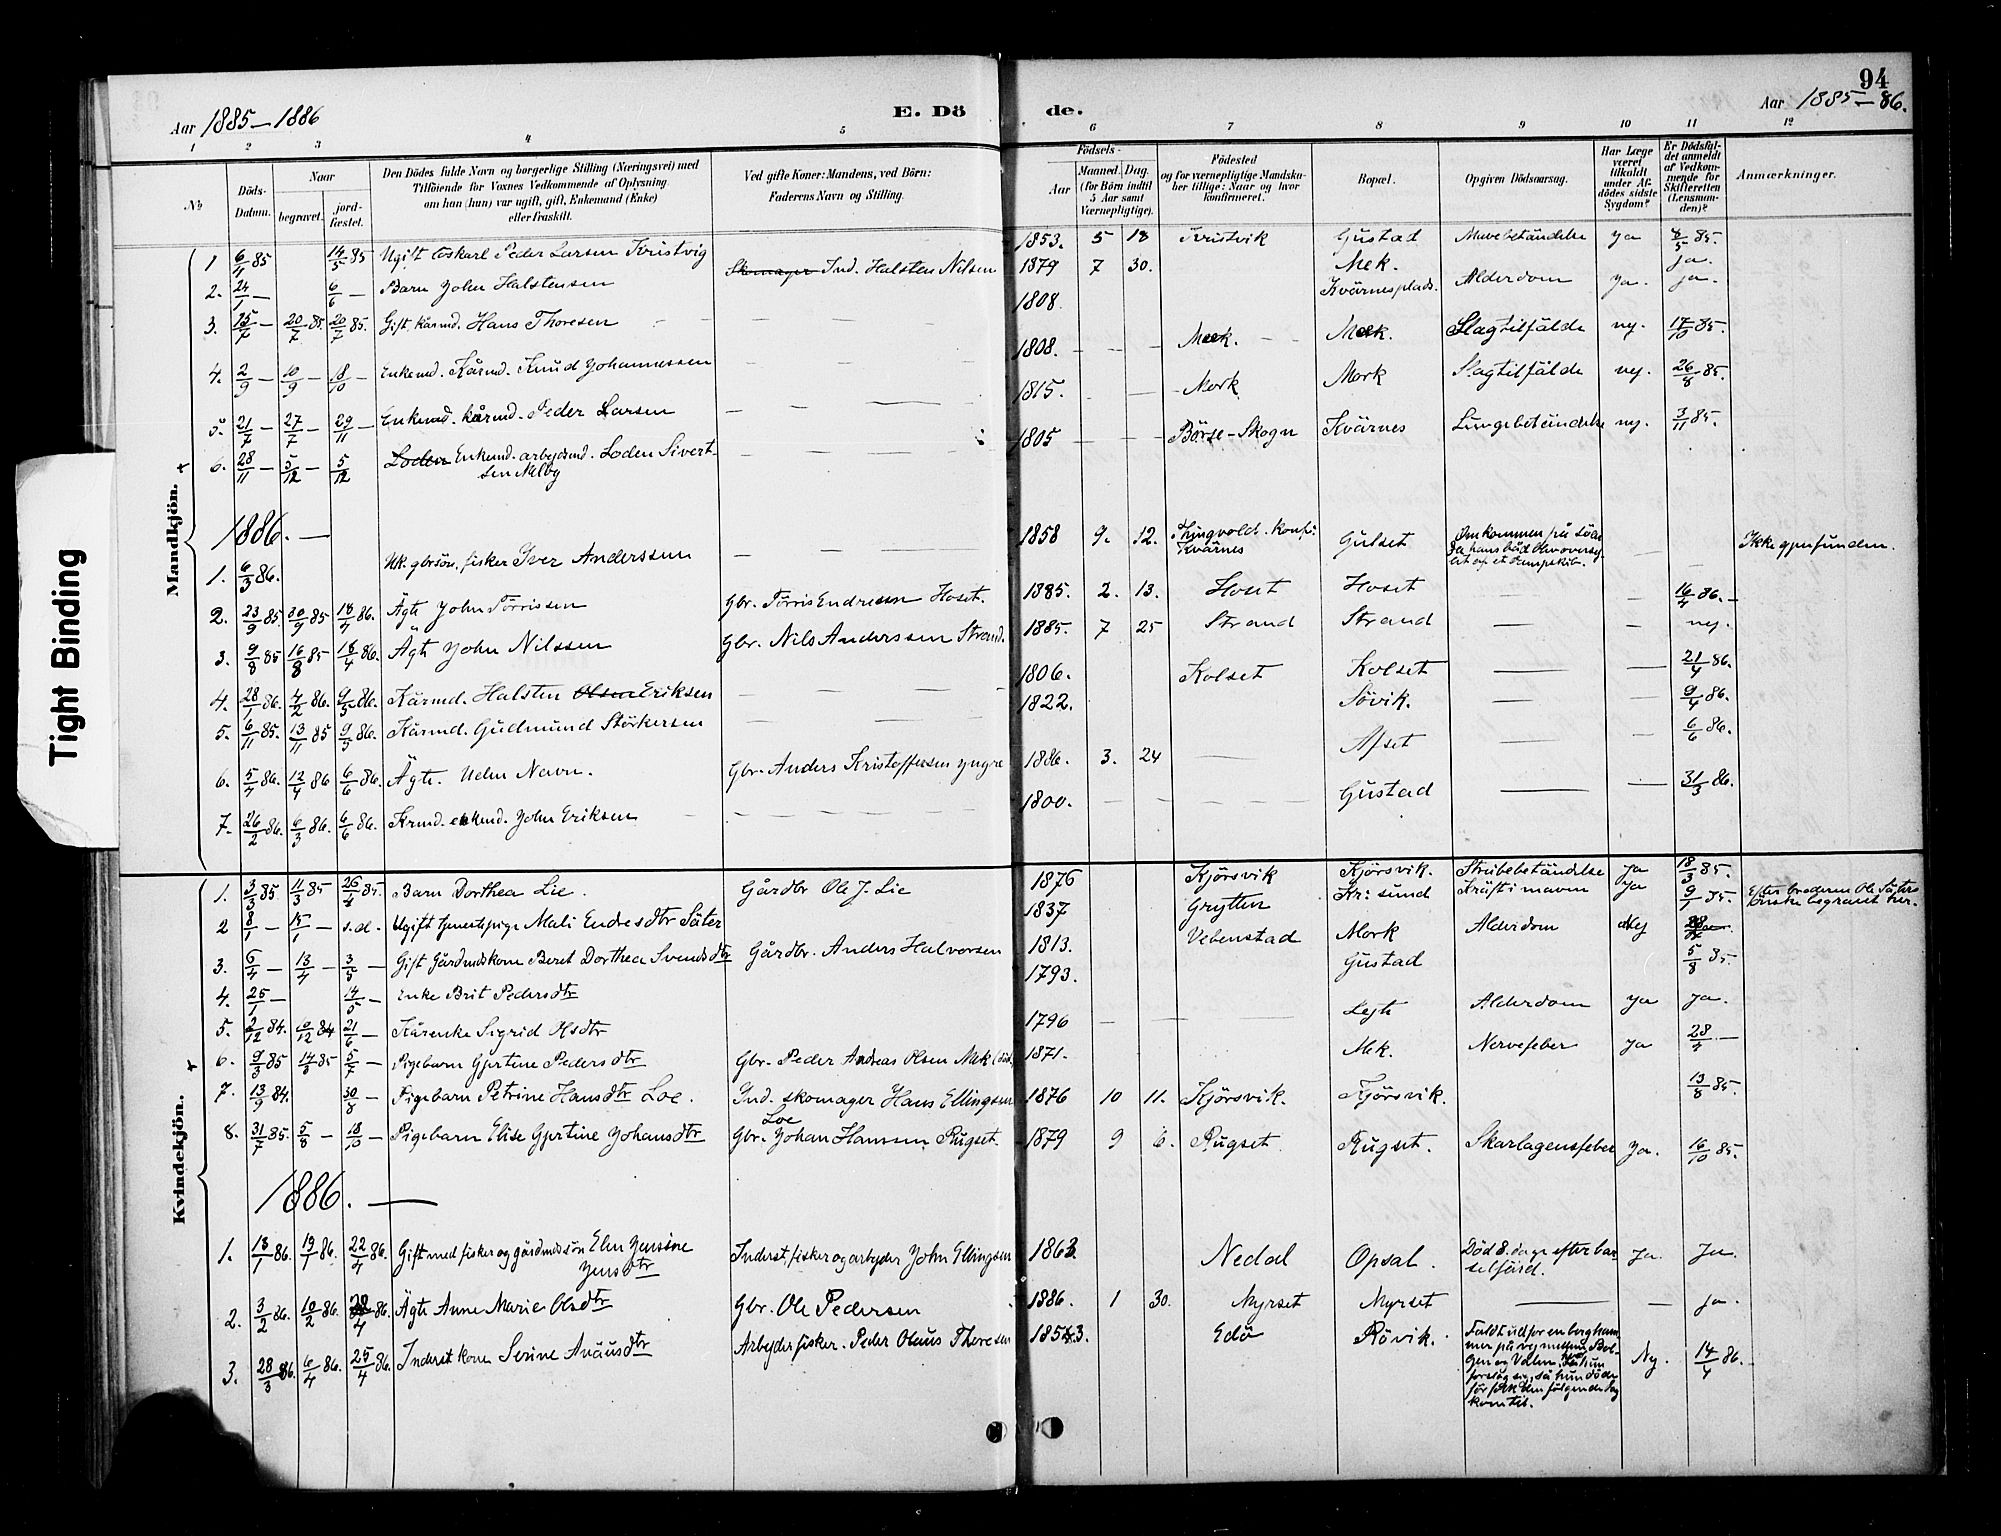 94
Aar 1885-1886
E. Dö
de.
Aar 1885-86.
1 2 3 4 5 6 7 8 9 10 11 12
No
Döds-Datum.
Naar
begravet.
jord-fæstet.
Den Dödes fulde Navn og borgerlige Stilling (Næringsvei) med
Tilföiende for Voxnes Vedkommende af Oplysning
om han (hun) var ugift, gift, Enkemand (Enke)
eller fraskilt.
Ved gifte Koner: Mandens, ved Börn:
Faderens Navn og Stilling.
Födsels-
Aar
Maaned. Dag.
(for Börn indtil
5 Aar samt
Værnepligtige).
Födested
og for værnepligtige Mandska-
ber tillige: Naar og hvor
konfirmeret.
Bopæl.
Opgiven Dödsaarsag.
Har Læge
været
tilkaldt
under Af-
dödes sidste
Sygdom?
Er Dödsfal-
det anmeldt
af Vedkom-
mende for
Skifteretten
(Lensman-
den)?
Anmærkninger.
Tight Binding
Mandkjön.
1 6/11 85 14/5 85 Ugift Löskarl Peder Larsen Kristvig 1853. 5 18 Kristvik Gustad Mavebetändelse ja 8/5 85.
2. 24/1 — 6/6 — Barn John Halstensen Skomager Ind. Halsten Nilsen 1879 7 30. Mek. ja.
3. 15/7 — 20/7 85. 20/7 85. Gift kårmd. Hans Thoresen 1808 Kvärnesplads. Alderdom ja. ja.
4. 2/9 — 10/9 — 18/10 — Enkemd. Kårmd. Knud Johannessen 1808. Meek. Meek. Slagtilfälde nej. 17/10 85.
5. 21/7 — 27/7 — 29/11 — Enkemd. kårmd. Peder Larsen 1815. Mork Mork Slagtilfälde nej. 26/8 85.
6. 28/11 — 5/12 — 5/12 Loden Enkemd. arbejdsmd. Loden Sivert-
sen Melby 1805 Börse-Skogn Kvärnes Lungebetändelse nej. 3/11 85.
1886. —
1. 6/3 86. Uk. gbrsön, fisker Iver Anderssen 1858 9. 12. Thingvold. Konfi. Kvärnes Gulset Omkommen på söen Ikke gjenfunden.
2. 23/9 85. 30/9 85 18/4 86. Ägte John Törrissen Gbr. Törris Endresen Hoset. 1885. 2. 13. Hoset Hoset 16/4 86. —
3. 9/8 85 16/8 85 18/4 86. Ägte John Nilssen Gbr. Nils Anderssen Strand. 1885. 7 25 Strand Strand nej.
4. 28/1 86. 4/2 86. 9/5 86. Kårmd. Halsten Olsen Eriksen 1806. Kolset Kolset 21/4 86.
5. 6/11 85. 13/11 85 9/5 86. Kårmd. Gudmund Störkersen 1822. Sövik. 9/4 86.
6. 5/4 86. 12/4 86 6/6 86. Ägte. Uden Navn. Gbr. Anders Kristoffersen yngre 1886. 3. 24 Afset 6/6 86.
7. 26/2 86. 6/3 86. 6/6 86. Krmd. enkemd. John Eriksen 1800. Gustad 31/3 86.
Kvindekjön.
1. 3/3 85 11/3 85 26/4 85. Barn Dorthea Lie. Gårdbr Ole J. Lie 1876 Kjörsvik Kjörsvik. Strubebetändelse ja 18/3 85.
2 8/1 — 15/1 — s.d. Ugift tjenestepige Mali Endresdtr Säter 1837 Grytten Kr: sund Kräft i maven ja 9/1 85. Efter broderen Ole Säters önske begravet her.
3. 6/4 — 13/4 — 3/5 — Gift Gårdmdskone Beret Dorthea Svendsdtr Gårdbr. Anders Halvorsen 1813. Vebenstad Mork Alderdom Nej
4. 25/1 — 14/5 — Enke Brit Pedersdtr 1793. Gustad 5/8 85.
5. 2/12 84. 10/12 84 21/6 — Kårenke Sigrid Olsdtr 1796 Lejte Alderdom ja ja.
6. 9/3 85 14/3 85 5/7 — Pigebarn Gjertine Pedersdtr Gbr. Peder Andreas Olsen Mek 1871. Mek. Nervefeber ja 28/4 —
7. 13/9 84. 30/8 — Pigebarn Petrine Hansdtr Loe. Ind. skomager Hans Ellingsen Loe 1876 10 11. Kjörsvik. Kjörsvik. 13/8 85.
8. 31/7 85. 5/8 — 18/10 — Pigebarn Elise Gjertine Johansdtr Gbr. Johan Hansen Rugset. 1879 9 6. Rugset Rugset. Skarlagensfeber Ja. 16/10 85.
1886. —
1. 13/1 86. 19/1 86. 22/4 86. Gift med fisker og gårdmdssön Elen Jensine
Jensdtr Inderst, fisker og arbejder John Ellingsen 1863. Nedal Opsal. Död 8. dage efter bar-
selfärd. ja. Ja.
2. 3/2 86. 10/2 86. 86. Ägte Anne Marie Olsdtr Gbr. Ole Pedersen 1886. 1 30. Myrset Myrset — ja.
3. 28/3 86. 6/4 86. 25/4 86. Inderst kone Serine Anäusdtr Arbejder fisker. Peder Olaus Thoresen 1853. Edö Rövik. Faldt ud for en berghammer på vej mellem
Nej. 14/4 86. —